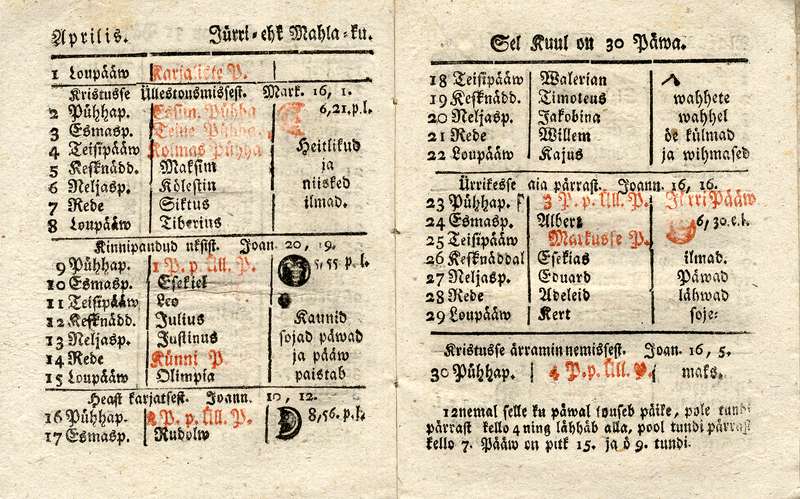 Aprilis. Jürri-ehk Mahla-ku.
1 Loupääw Karjaliste P.
Kristusse Üllestousmissest. Mark. 16, 1.
2 Pühhap. Essim. Pühha 6,21.p.l.
3 Esmasp. Teine Pühha.
4 Teisipääw Kolmas Pühha Heitlikud
5 Kesknädd. Maksim ja
6 Neljasp. Kölestin niisked
7 Rede Siktus ilmad.
8 Loupääw Tiberius
Kinnipandud uksist. Joan. 20, 19.
9 Pühhap. 1 P. p. üll. P. 5,55 p.l.
10 Esmasp. Esekiel
11 Teisipääw Leo
12 Kesknädd. Julius Kaunid
13 Neljasp. Justinus sojad päwad
14 Rede Künni P. ja pääw
15 Loupääw Olimpia paistab
Heast karjatsest. Joann. 10, 12.
16 Pühhap. 2 P. p. üll. P. 8,56. p.l.
17 Esmasp. Rudolw
Sel Kuul on 30 Päwa.
18 Teisipääw Walerian
19 Kesknädd. Timoteus wahhete
20 Neljasp. Jakobina wahhel
21 Rede Willem öe külmad
22 Loupääw Kajus ja wihmased
Ürrikesse aia pärrast. Joann. 16, 16.
23 Pühhap. 3 P. p. üll. P. Jürri Pääw
24 Esmasp. Albert 6, 30. e.l.
25 Teisipääw Markusse P.
26 Kesknäddal Esekias ilmad.
27 Neljasp. Eduard Päwad
28 Rede Adeleid lähwad
29 Loupääw Kert soje-
Kristusse ärraminnemissest. Joan. 16, 5.
30 Pühhap. 4 P. p. üll. P. maks.
12nemal selle ku päwal touseb päike, pole tundi
pärrast kello 4 ning lähhäb alla, pool tundi pärrast
kello 7. Pääw on pitk 15. ja ö 9. tundi.